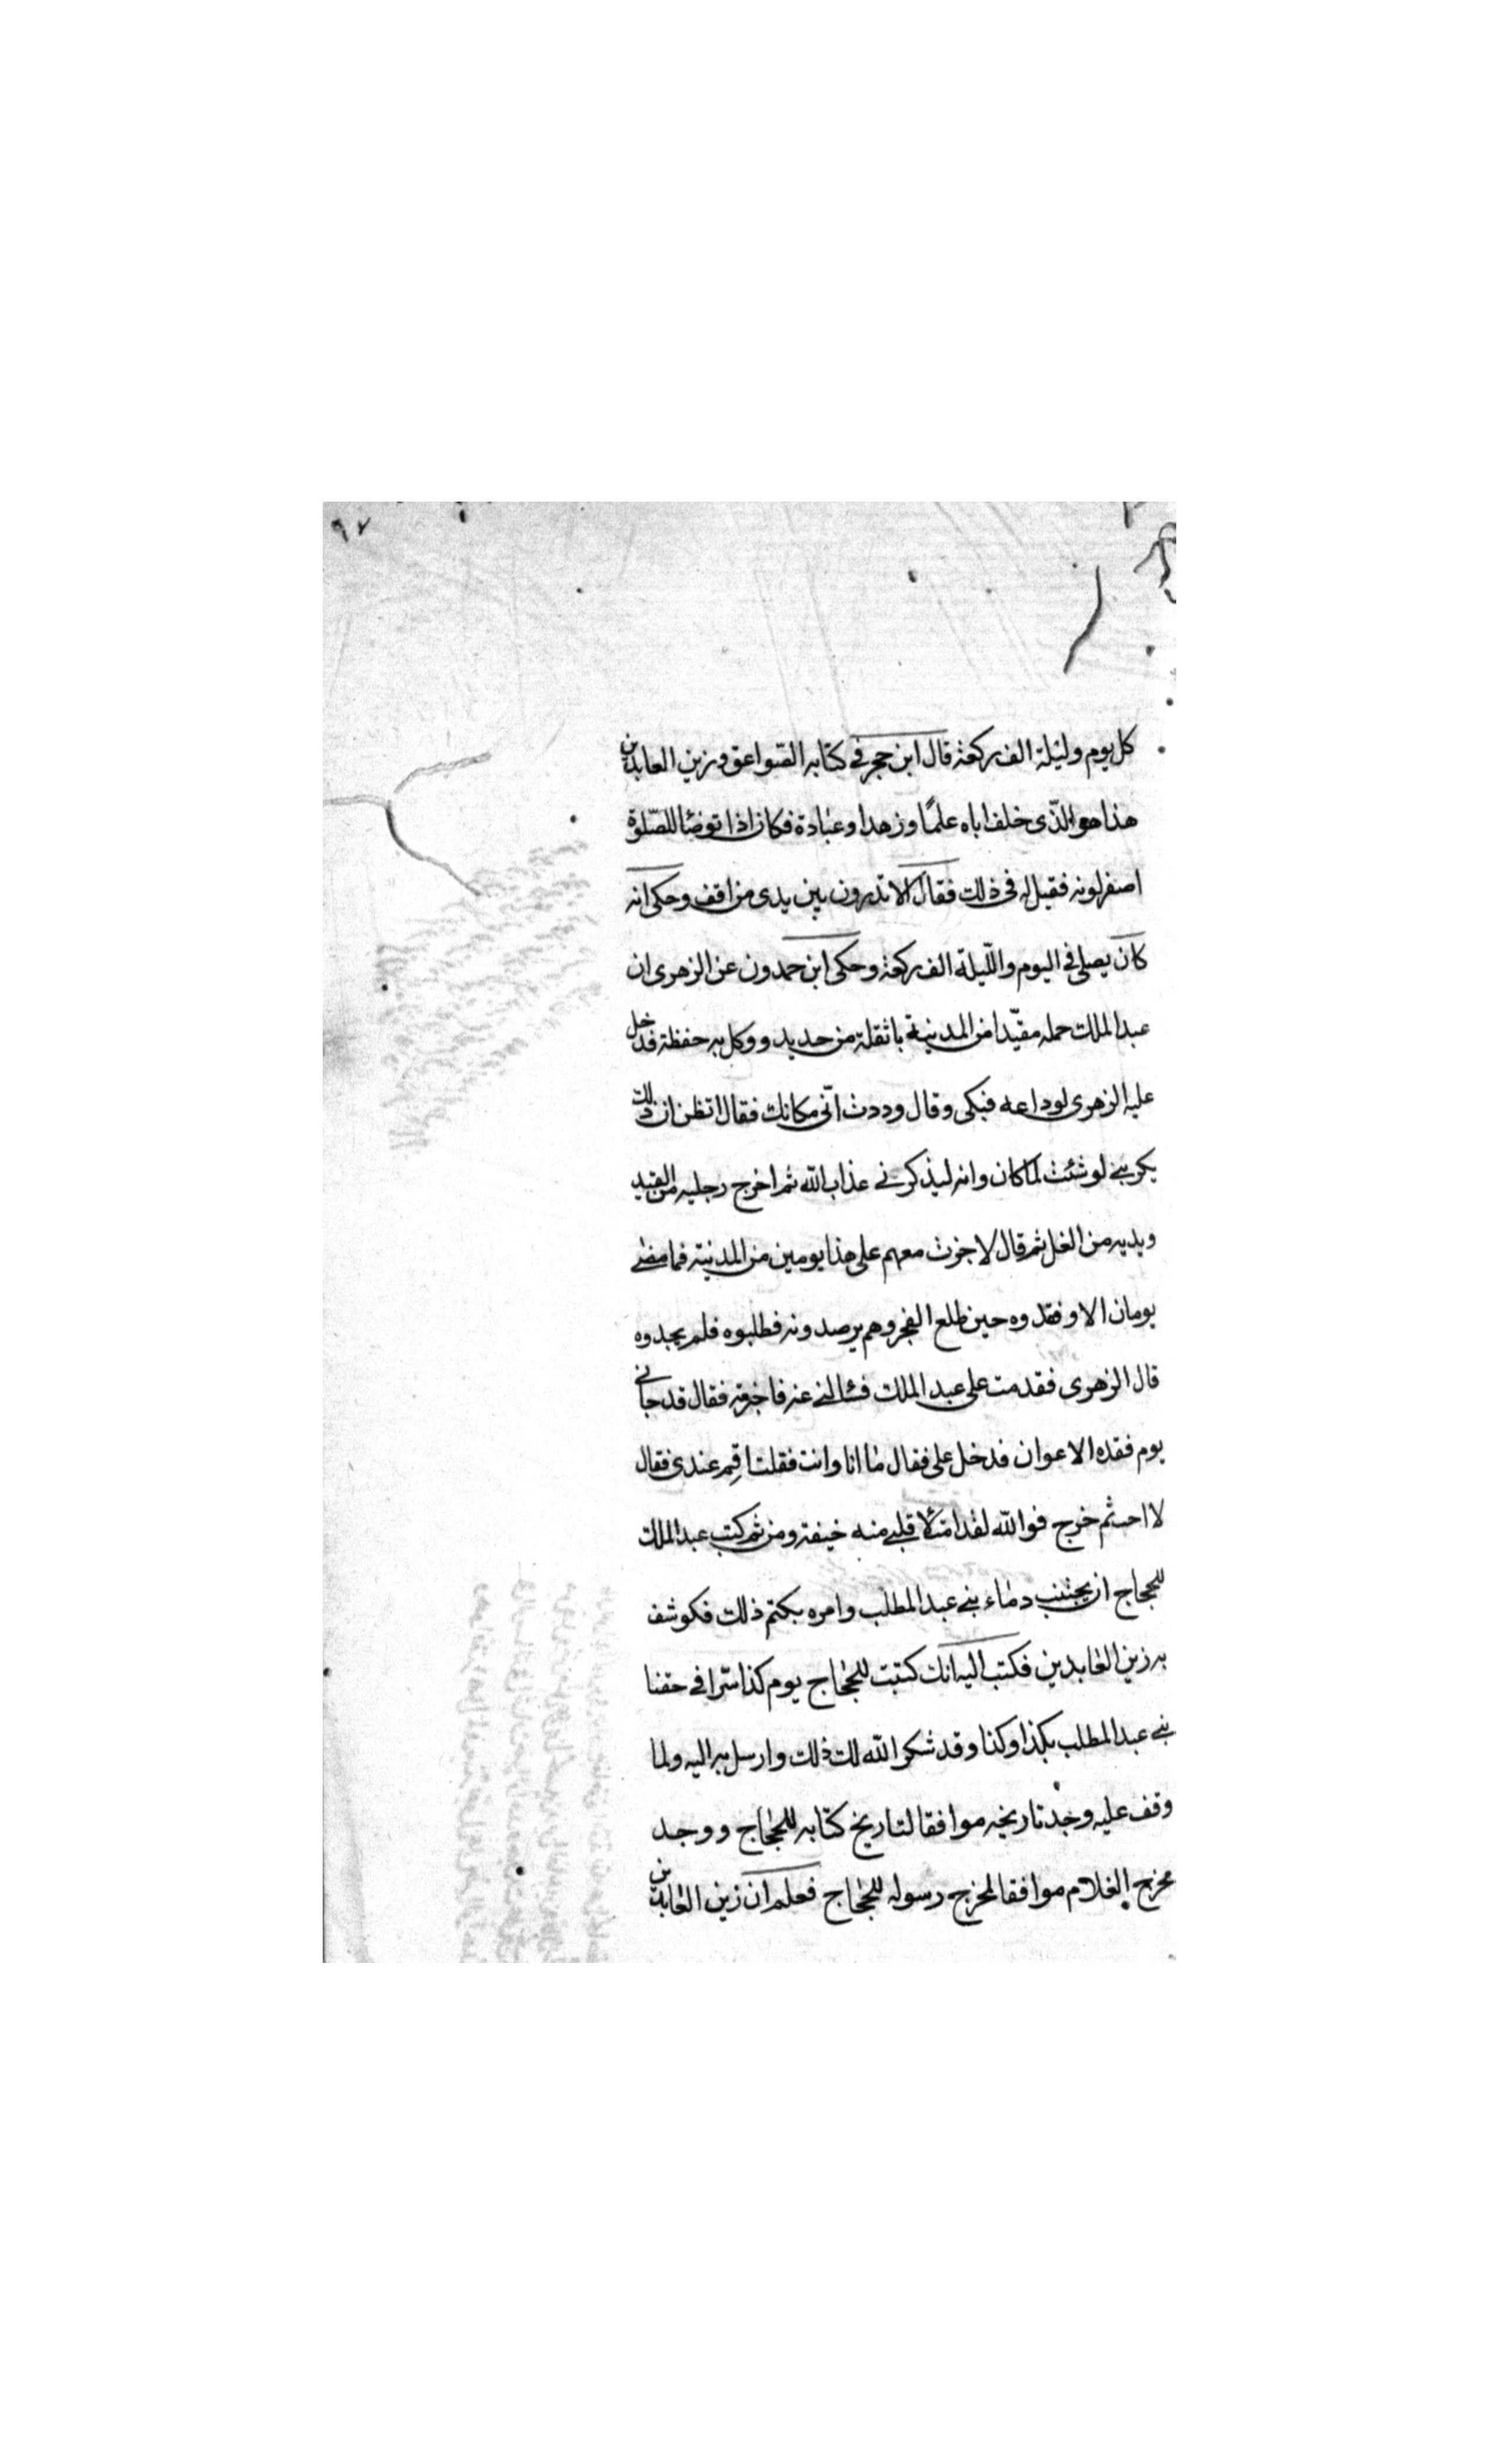 ٩٧
كل يوم وليلة الف ركعة قال ابن حجر في كتابه الصّواعق وزين العابدين
هذا هو الذّى خلف اباه علمًا وزهدا وعبادة فكان اذا توضّأ للصّلوة
اصفر لونه فقيل له فى ذلك فقال الا تدرون بين يدى من اقف وحكى انه
كان يصلى فى اليوم واللّيلة الف ركعة وحكى ابن حمدون عن الزهرى ان
عبد الملك حمله مقيّدا من المدينة باثقلة من حديد ووكل به حفظة فدخل
عليه الزهرى لوداعه فبكى وقال وددت انّى مكانك فقال اتظن ان ذلك
يكربنے لو شئت لما كان وانه ليذكرنے عذاب الله ثم اخرج رجليه من القيد
ويديه من الغل ثم قال لا جزت معهم على هذا يومين من المدينة فما مضے
يومان الا وفقدوه حين طلع الفجر وهم يرصدونه فطلبوه فلم يجدوه
قال الزهرى فقدمت على عبد الملك فسألنے عنه فاخبرته فقال قد جانے
يوم فقده الاعوان فدخل على فقال ما انا وانت فقلت اقِم عندى فقال
لا احب ثم خرج فوالله لقد امتلأ قلبے منه خيفة ومن ثم كتب عبد الملك
للحجاج ان يجتنب دماء بنے عبد المطلب وامره بكتم ذلك فكوشف
به زين العابدين فكتب اليه انك كتبت للحجاج يوم كذا سّرا فے حقنا
بنے عبد المطلب بكذا وكذا وقد شكر الله لك ذلك وارسل به اليه ولما
وقف عليه وجد تاريخه موافقا لتاريخ كتابه للحجاج ووجد
مخرج الغلام موافقا لمخرج رسوله للحجاج فعلم ان زين العابدين